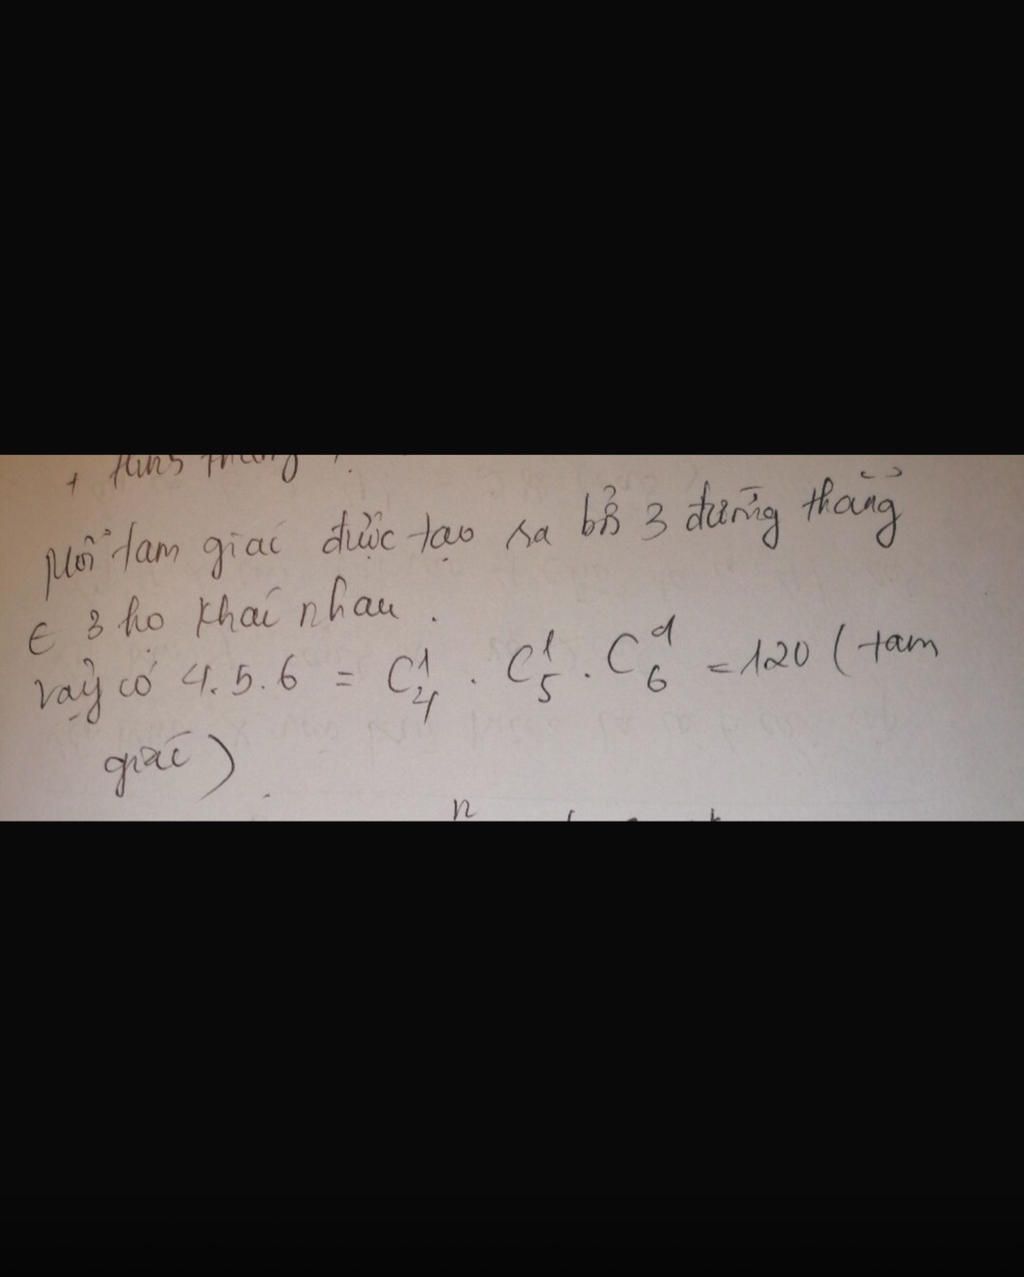 Mỗi tam giác được tạo ra bởi 3 đường thẳng
∈ 3 họ khác nhau.
Vậy có 4.5.6 = C₄¹ . C₅¹ . C₆¹ = 120 (tam
giác)
n